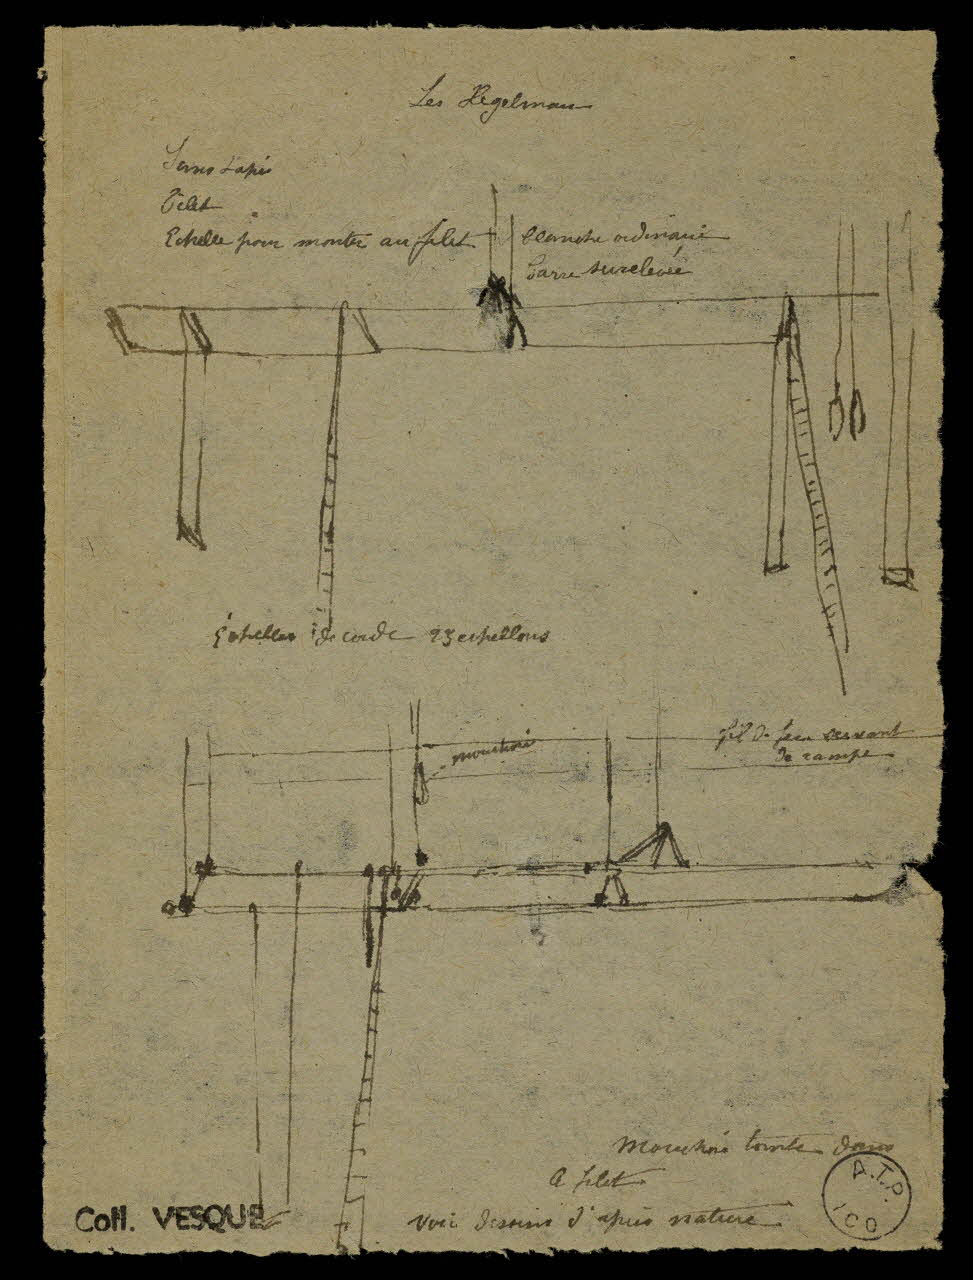 Les Regelman
Sans tapis
Filet
Echelle pour monter au filet
blanche ordinaire
barre surelevée
Échelles de corde 23 echellons
fil de fer servant
de rampe
mouchoir
Mouchoir tombe dans
a filet
voir dessins d'après nature
Coll. VESQUE
A.T.P.
ICO